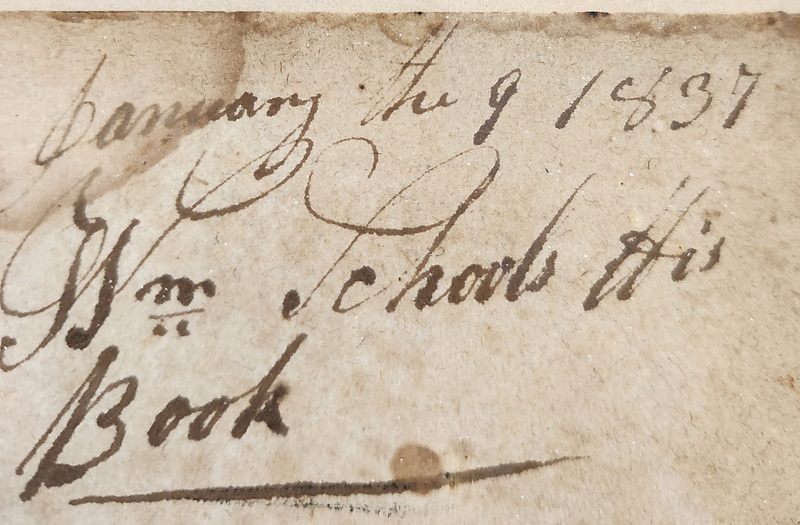 January the 9 1837
Wm Schools His
Book